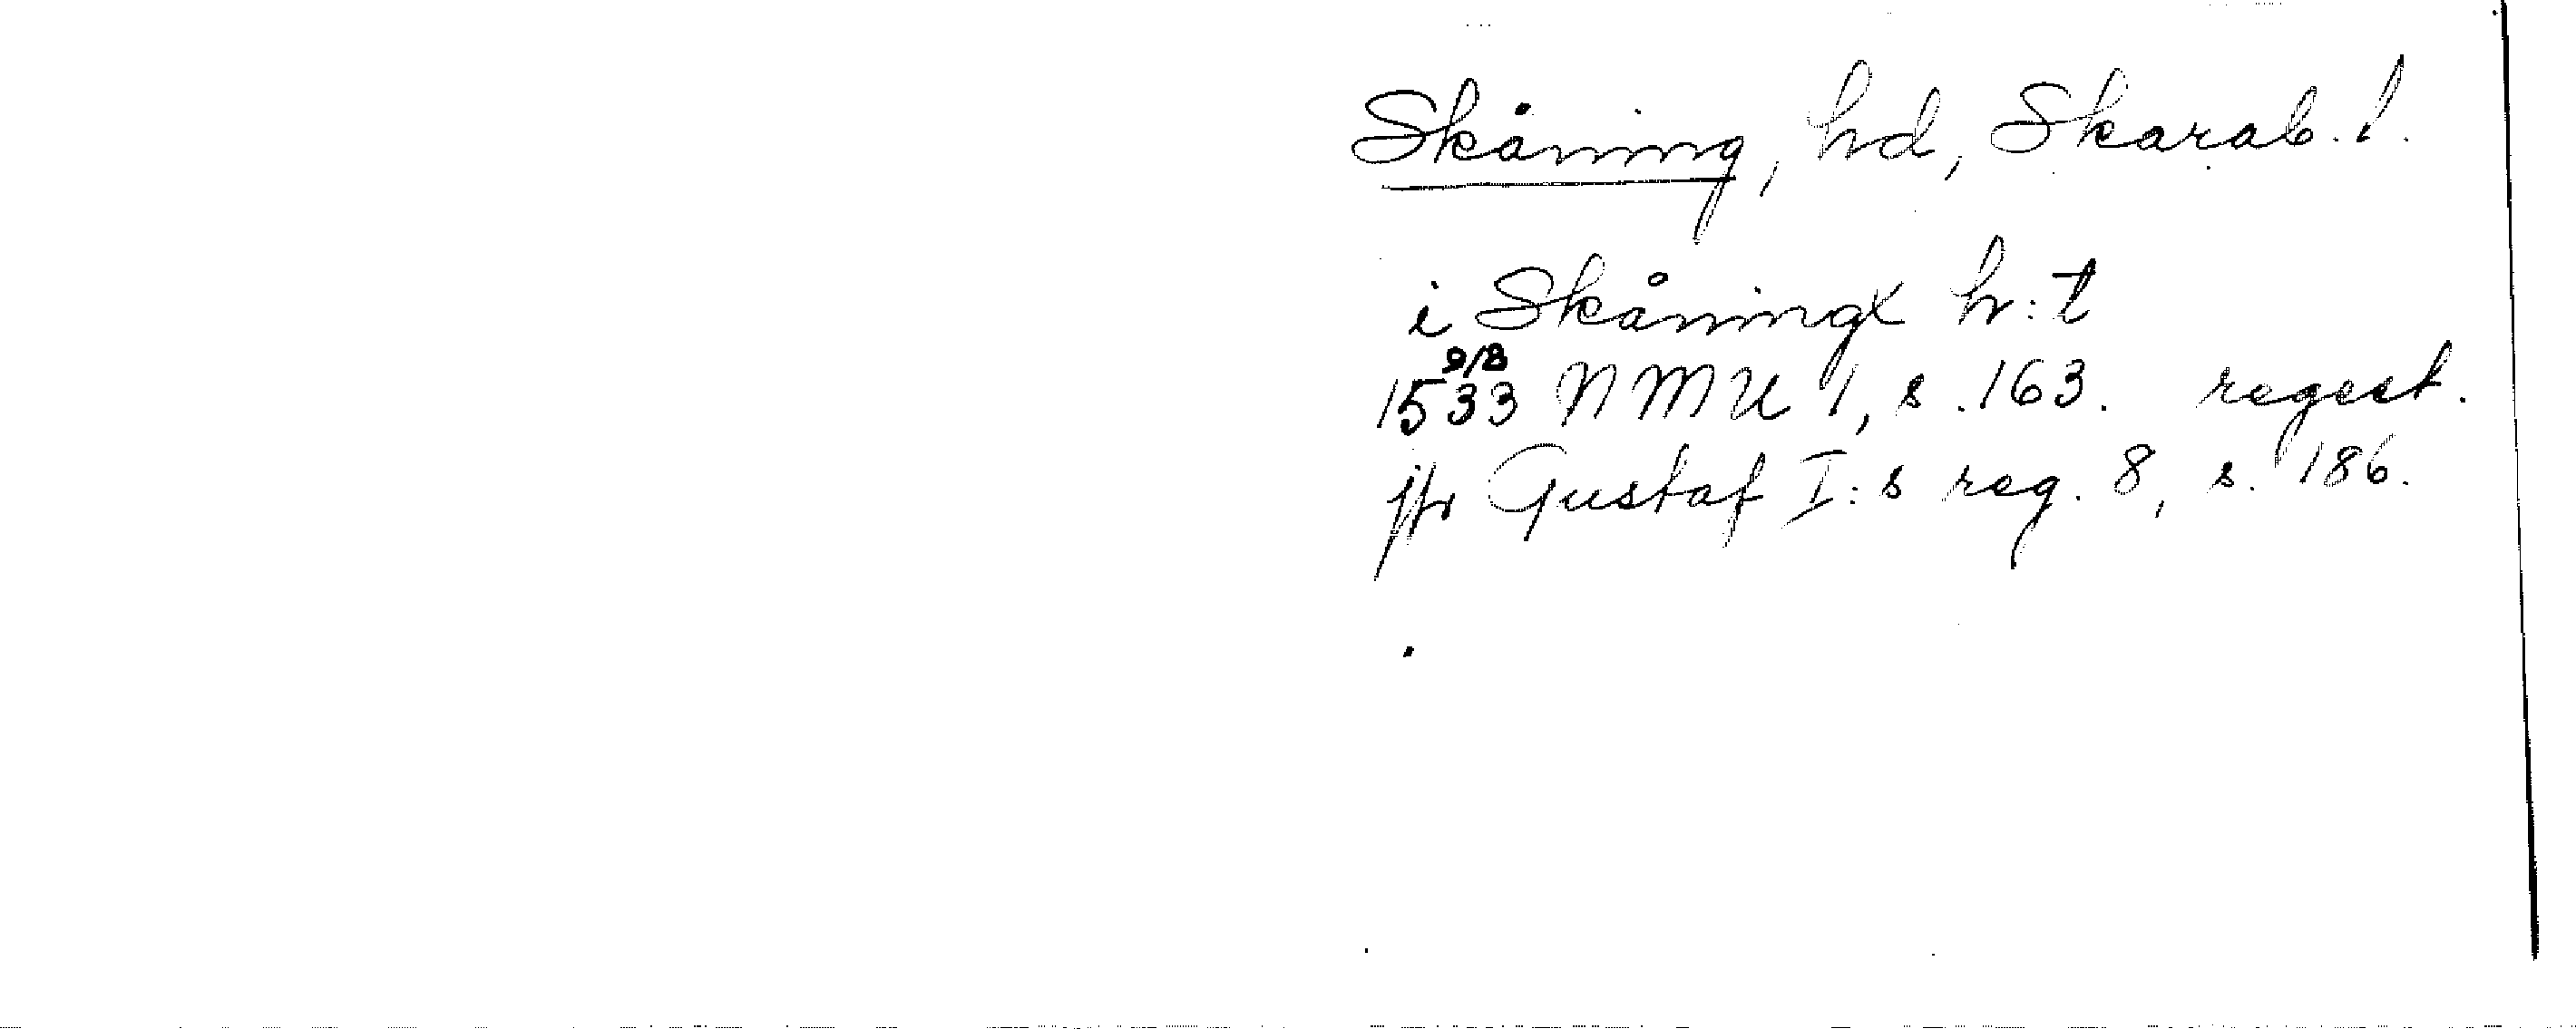 Skåning, hd, Skarab. l.
i Skåningx h:t
9/8
1533 NMU 1, s. 163. regest.
jfr Gustaf I:s reg. 8, s. 186.